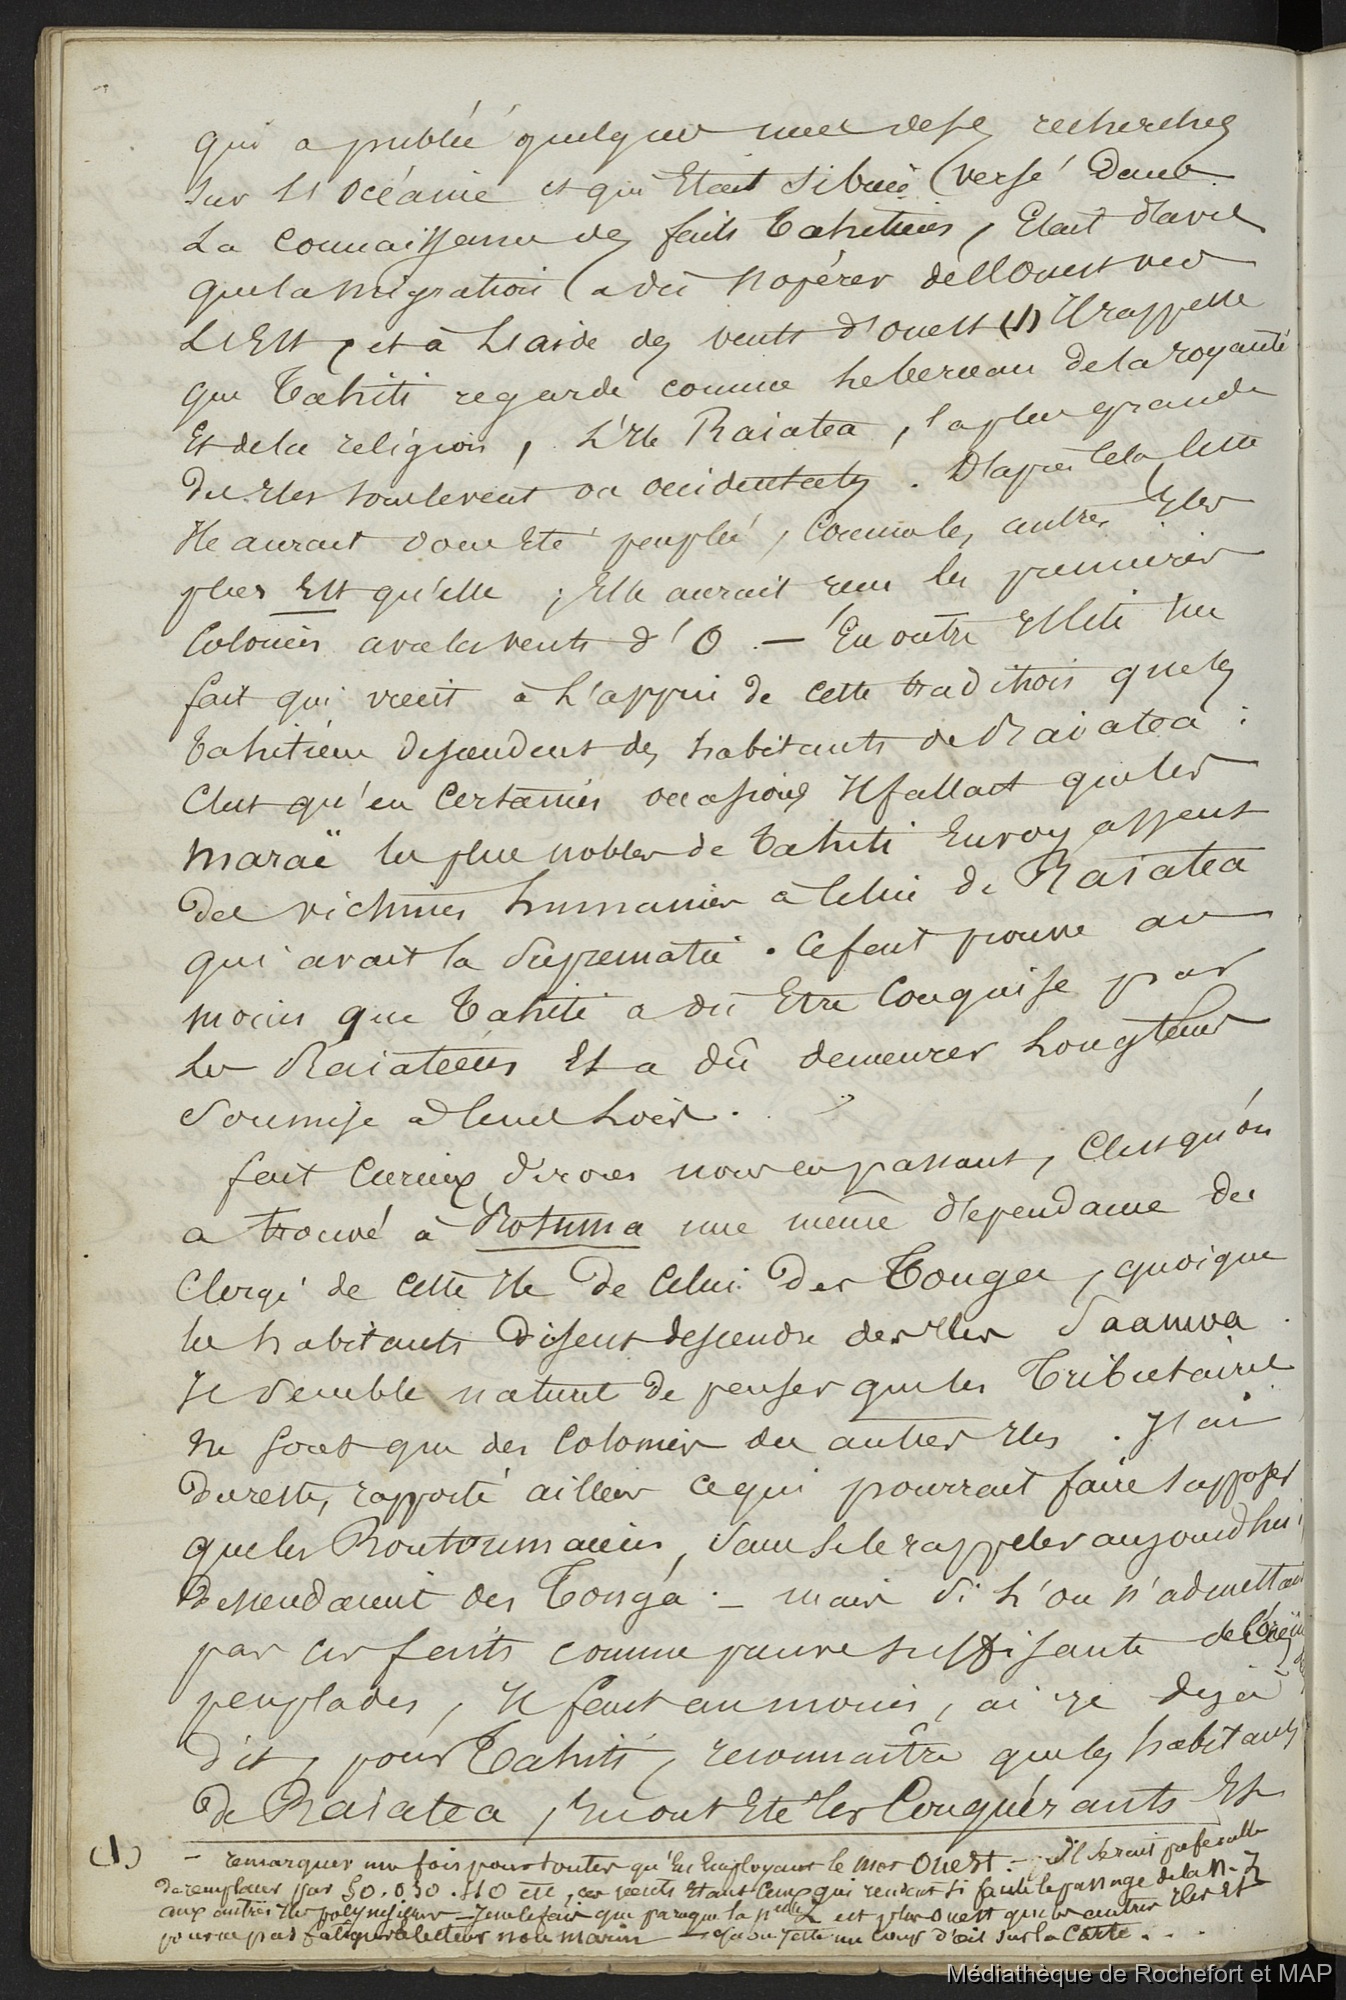 qui a publié quelques unes de ses recherches
sur l'Océanie et qui Etait si bien versé dans
La connaissance des faits Tahitiens, Etait d'avis
que la migration a dû s'opérer de l'Ouest vers
L'Est, et à L'aide des vents d'ouest (1) Il rappelle
que Tahiti regarde comme le berceau de la royauté
Et de la religion, L'Ile Raiatea, la plus grande
des Iles sous le vent ou occidentales. D'après cela cette
Ile aurait donc Eté peuplée, comme les autres Iles
plus Est qu'elle, Elle aurait reçu les premières
Colonies avec les vents d'O. — En outre Il cite un
fait qui vient à L'appui de cette tradition que les
Tahitiens descendent des habitants de Raiatea :
C'est qu'en Certaines occasions Il fallait que les
maraë les plus nobles de Tahiti Envoyassent
des victimes humaines à Celui de Raiatea
qui avait la Suprematie. Ce fait prouve au
moins que Tahiti a dû Etre Conquise par
Les Raiatéens Et a dû demeurer Longtems
Soumise à leurs Lois.
fait Curieux, dirons nous en passant, C'est qu'on
a trouvé à Rotuma une même dépendance du
Clergé de Cette Ile de Celui des Tonga, quoique
les habitants disent descendre des Iles Saamoa.
Il semble naturel de penser que les Tributaires
ne sont que des Colonies des autres Iles. J'ai
du reste, rapporté ailleurs ce qui pourrait faire supposer
que les Routoumaiens, sans se le rappeler aujourdhui
descendaient des Tonga. — mais si L'on n'admettait
pas ces faits comme preuve suffisante de l'origine des
peuplades, Il faut au moins, ai-je dejà
dit, pour Tahiti, reconnaître que les habitants
de Raiatea, En ont Eté les Conquérants Et
(1) — remarquer une fois pour toutes qu'En Employant le mot Ouest. — Il serait preferable
de remplacer par SO. OSO. NO etc, ces vents Etant Ceux qui rendent si facile le passage de la N. Z
aux autres Iles polynésiennes — Je ne le fais que parceque la Nelle Z est plus ouest que les autres Iles Et
pour ne pas fatiguer le lecteur non marin — qu'on jette un coup d'oeil sur la Carte. . .
Médiathèque de Rochefort et MAP